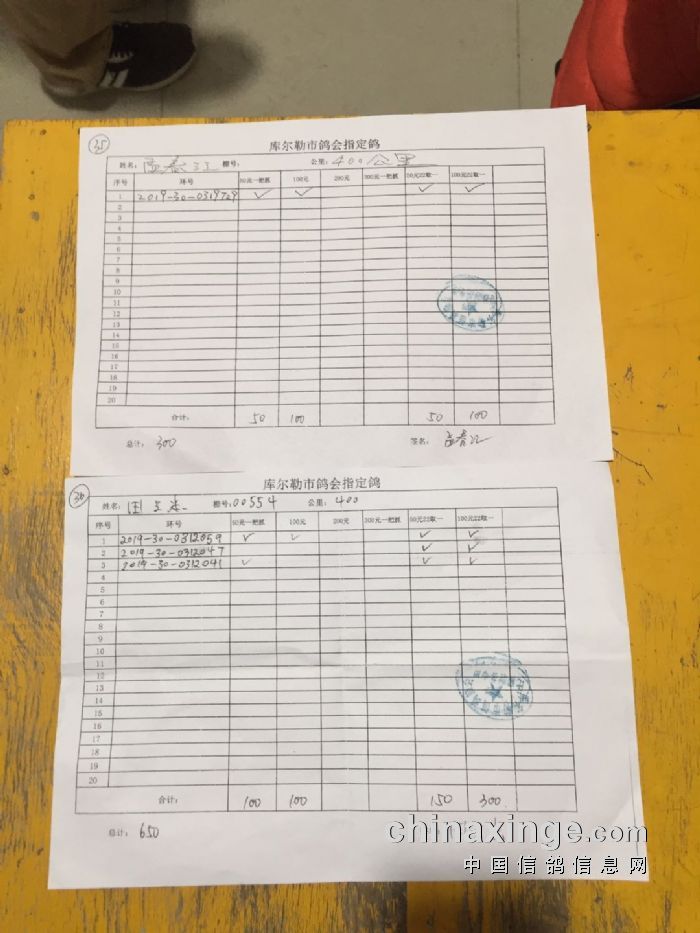 35
库尔勒市鸽会指定鸽
姓名: 孟春江 棚号: 公里: 400公里
序号 环号 50元一把抓 100元 200元 300元一把抓 50元22取一 100元22取一
1 2019-30-0319729 ✓ ✓ ✓ ✓
2
3
4
5
6
7
8
9
10
11
12
13
14
15
16
17
18
19
20
合计: 50 100 50 100
总计: 300 签名:
36
库尔勒市鸽会指定鸽
姓名: 棚号: 00554 公里: 400
序号 环号 50元一把抓 100元 200元 300元一把抓 50元22取一 100元22取一
1 2019-30-0312059 ✓ ✓ ✓ ✓
2 2019-30-0312047 ✓ ✓
3 2019-30-0312041 ✓ ✓ ✓
4
5
6
7
8
9
10
11
12
13
14
15
16
17
18
19
20
合计: 100 100 150 300
总计: 650
chinaxinge.com
中国信鸽信息网